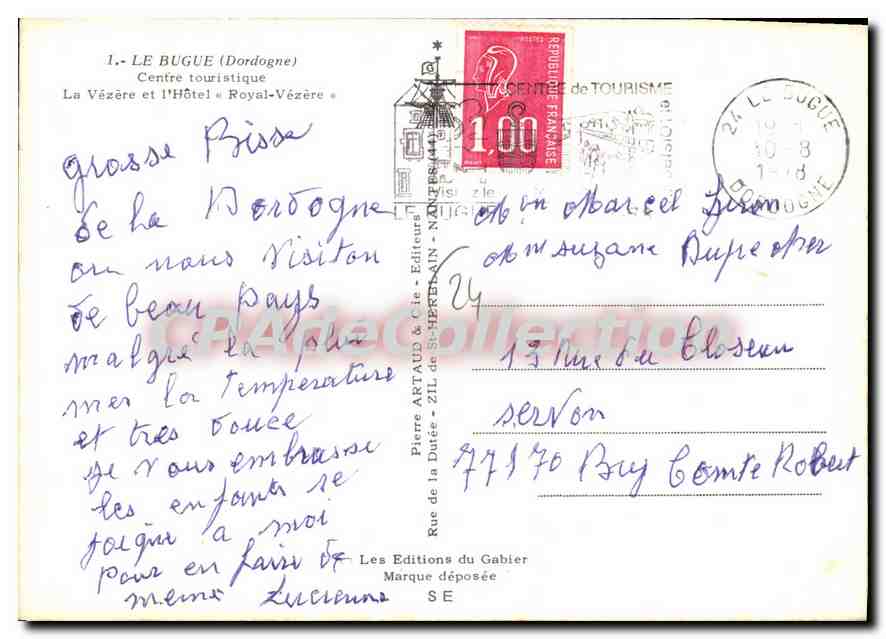 1.- LE BUGUE (Dordogne)
Centre touristique
La Vézère et l'Hôtel « Royal-Vézère »
grosse Bisse
de la Dordogne
ou nous visiton
de beau pays
malgré la plui
mer la Temperature
et tres douce
je vous embrasse
les enfants se
joigne a moi
pour en faire de
meme Lucienne
Pierre ARTAUD & Cie - Editeurs
Rue de la Dutée - ZIL de St-HERBLAIN - NANTES (44)
REPUBLIQUE FRANÇAISE
POSTES
1,00
CENTRE de TOURISME
Visitez le
BUGUE
24 LE BUGUE
10-8
DORDOGNE
Mon Marcel
Mme Suzane
24
13 Rue du Closeau
servon
77170 Bry Comte Robert
Les Editions du Gabier
Marque déposée
SE
CPArteCollection